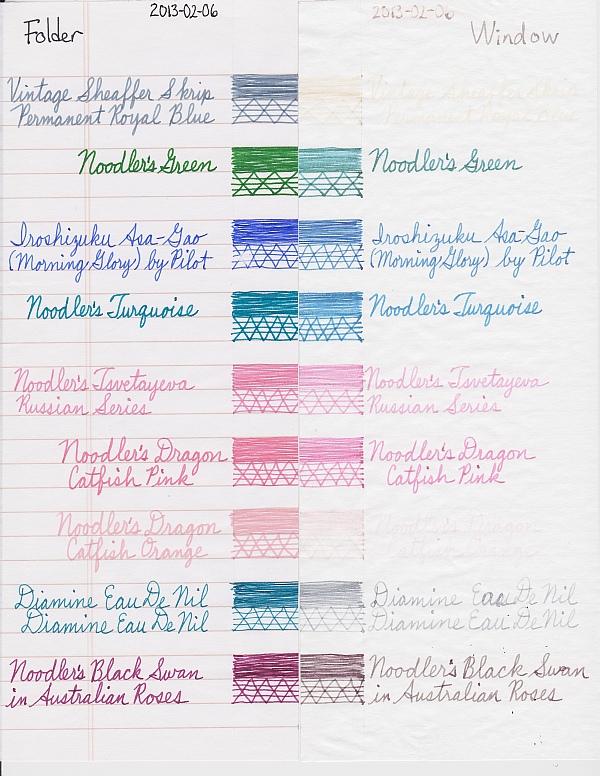 Folder
2013-02-06
Vintage Sheaffer Skrip
Permanent Royal Blue
Noodler's Green
Iroshizuku Asa-Gao
(Morning Glory) by Pilot
Noodler's Turquoise
Noodler's Tsvetayeva
Russian Series
Noodler's Dragon
Catfish Pink
Noodler's Dragon
Catfish Orange
Diamine Eau De Nil
Diamine Eau De Nil
Noodler's Black Swan
in Australian Roses
2013-02-06
Window
Vintage Sheaffer Skrip
Noodler's Green
Iroshizuku Asa-Gao
(Morning Glory) by Pilot
Noodler's Turquoise
Noodler's Tsvetayeva
Russian Series
Noodler's Dragon
Catfish Pink
Noodler's Dragon
Diamine Eau De Nil
Diamine Eau De Nil
Noodler's Black Swan
in Australian Roses